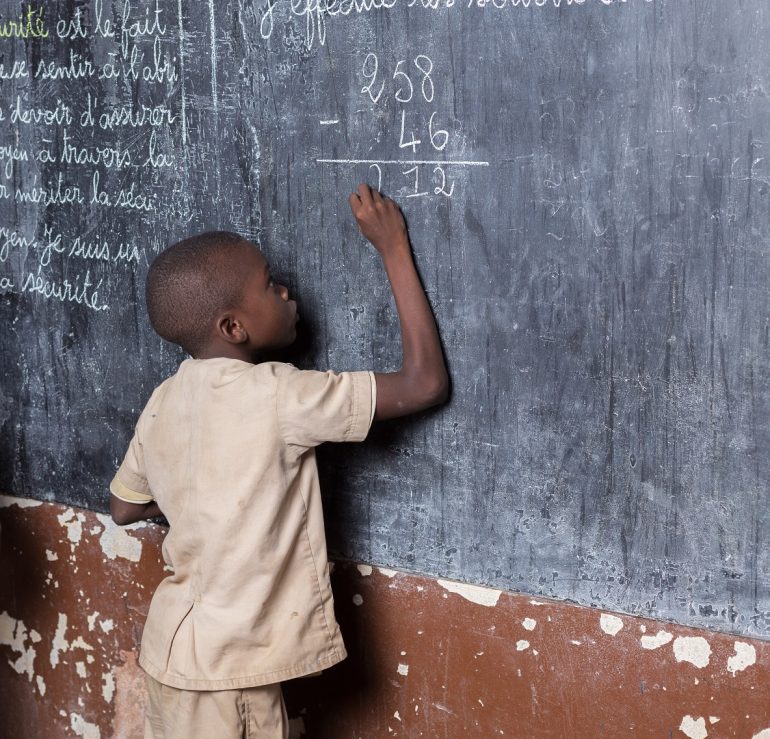 urité est le fait
se sentir à l'abri
devoir d'assurer
oyen à travers la
r mériter la séc
yen. Je suis un
a sécurité.
J'effectue les
258
- 46
212